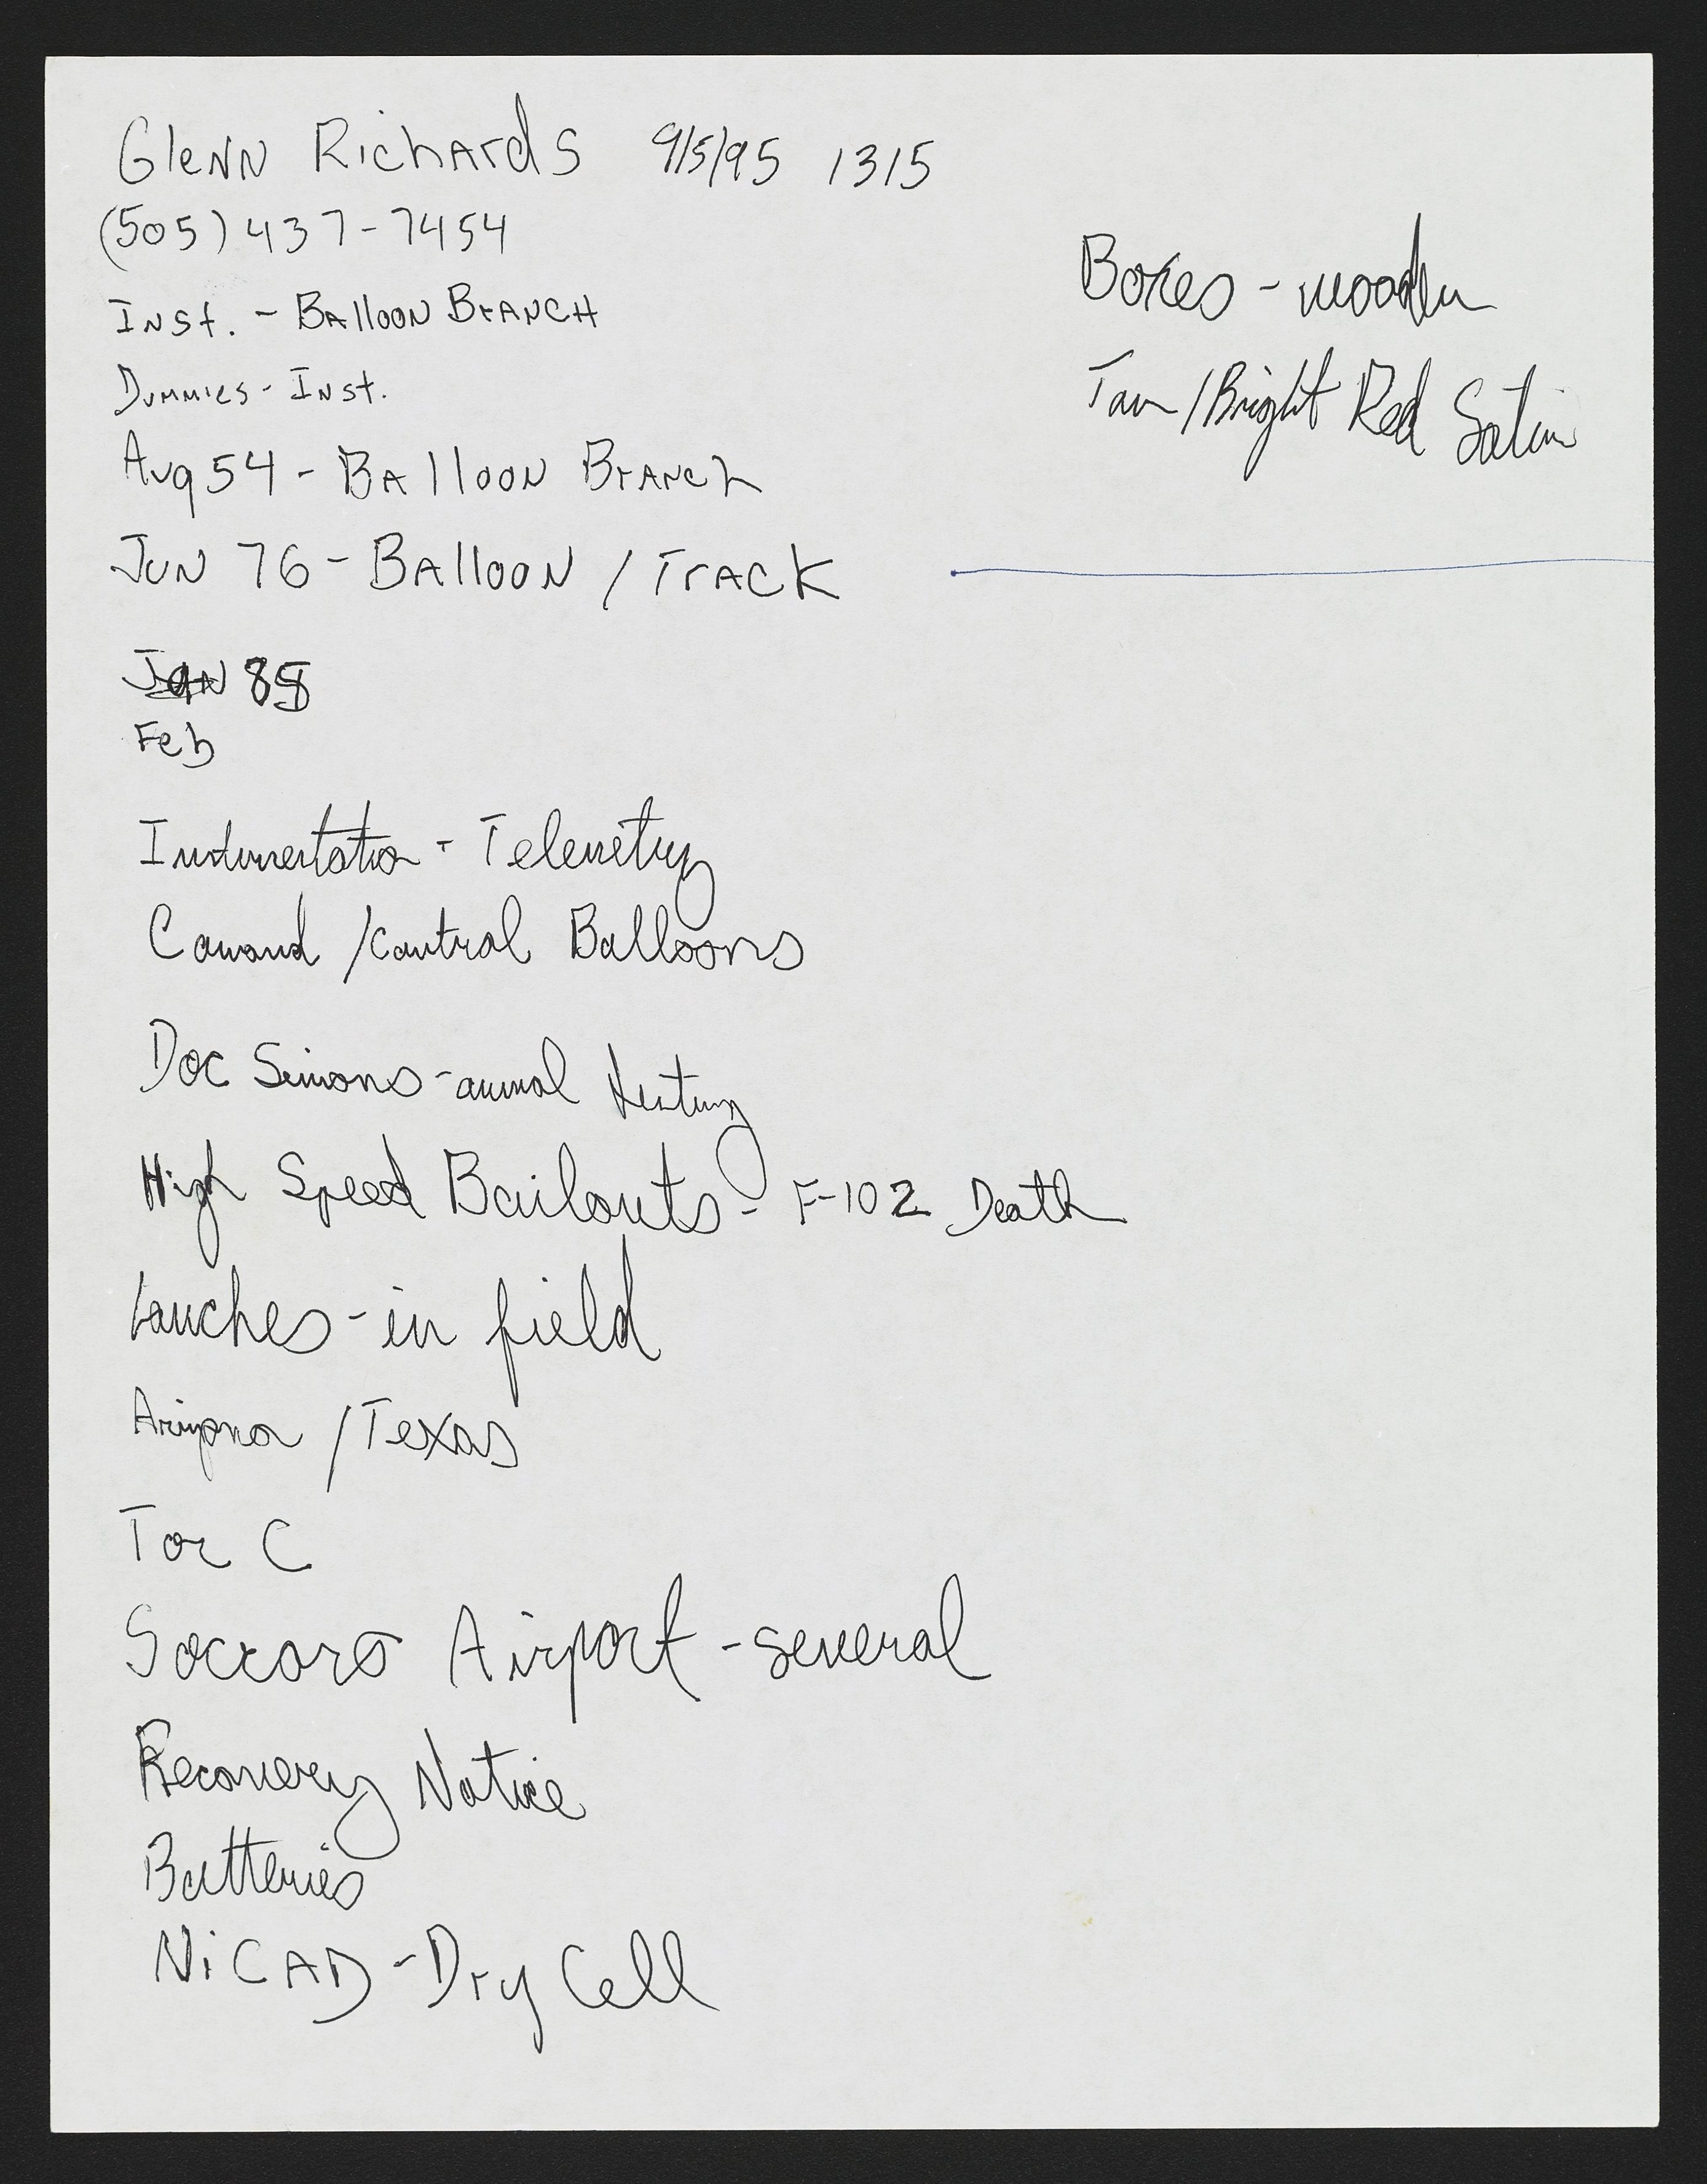 Glenn Richards 9/5/95 1315
(505) 437-7454
Inst. - Balloon Branch
Dummies - Inst.
Aug 54 - Balloon Branch
Jun 76 - Balloon / Track
Jan 85
Feb
Boxes - wooden
Tan / Bright Red Satin
Instrumentation - Telemetry
Command / Control Balloons
Doc Simons - animal
High Speed Bailouts - F-102 Death
Lauches - in field
Arizona / Texas
T or C
Soccoro Airport - several
Recovery Notice
Batteries
NiCAD - Dry Cell